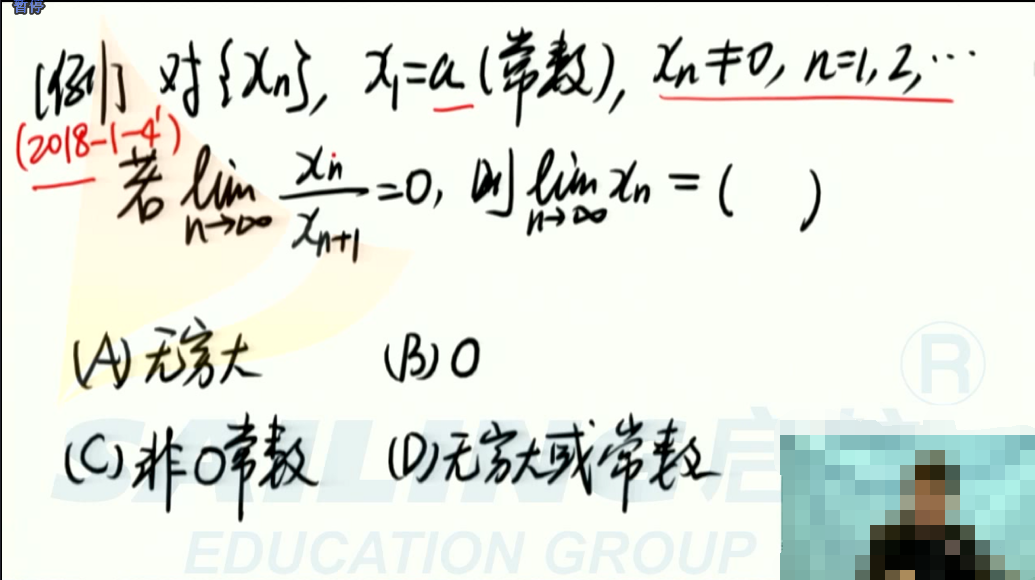 暂停
[例] 对{xₙ}, x₁=a(常数), xₙ≠0, n=1,2,…
(2018-1-4')
若 lim n→∞ xₙ/xₙ₊₁ =0, 则 lim n→∞ xₙ = ( )
(A) 无穷大 (B) 0
(C) 非0常数 (D) 无穷大或常数
®
SAILING 启航
EDUCATION GROUP